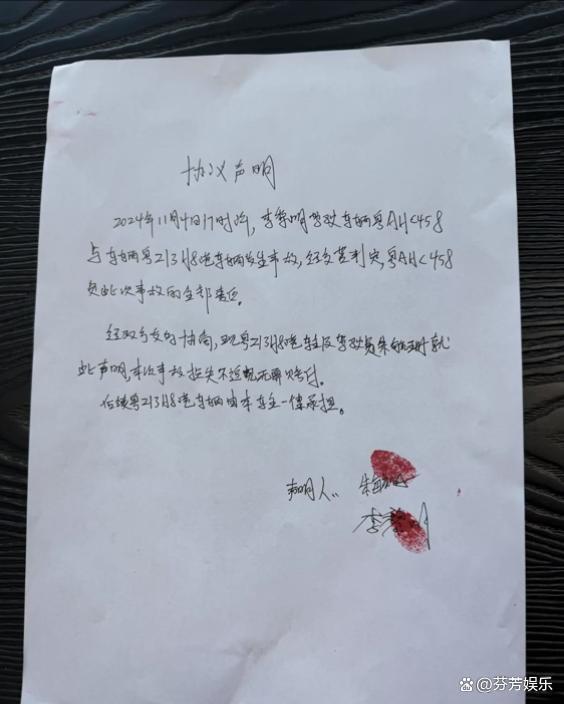 协议声明
2024年11月4日17时许，李 明驾驶车辆粤AH 458
与车辆粤Z13H8港车辆发生事故，经交警判定，粤AH 458
负此次事故的全部责任。
经双方友好协商，现粤Z13H8港车主及驾驶员朱 就
此声明，本次事故损失不追究无需赔付。
后续粤Z13H8港车辆由本车主一律承担。
声明人：朱
李 明
芬芳娱乐